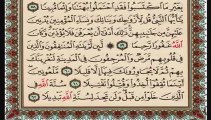 بِغَيْرِ مَا ٱكْتَسَبُوا۟ فَقَدِ ٱحْتَمَلُوا۟ بُهْتَـٰنًا وَإِثْمًا مُّبِينًا
يَـٰٓأَيُّهَا ٱلنَّبِىُّ قُل لِّأَزْوَٰجِكَ وَبَنَاتِكَ وَنِسَآءِ ٱلْمُؤْمِنِينَ يُدْنِينَ
عَلَيْهِنَّ مِن جَلَـٰبِيبِهِنَّ ذَٰلِكَ أَدْنَىٰٓ أَن يُعْرَفْنَ فَلَا يُؤْذَيْنَ وَكَانَ
ٱللَّهُ غَفُورًا رَّحِيمًا لَّئِن لَّمْ يَنتَهِ ٱلْمُنَـٰفِقُونَ وَٱلَّذِينَ
فِى قُلُوبِهِم مَّرَضٌ وَٱلْمُرْجِفُونَ فِى ٱلْمَدِينَةِ لَنُغْرِيَنَّكَ
بِهِمْ ثُمَّ لَا يُجَاوِرُونَكَ فِيهَآ إِلَّا قَلِيلًا مَّلْعُونِينَ
أَيْنَمَا ثُقِفُوٓا۟ أُخِذُوا۟ وَقُتِّلُوا۟ تَقْتِيلًا سُنَّةَ ٱللَّهِ
فِى ٱلَّذِينَ خَلَوْا۟ مِن قَبْلُ وَلَن تَجِدَ لِسُنَّةِ ٱللَّهِ تَبْدِيلًا